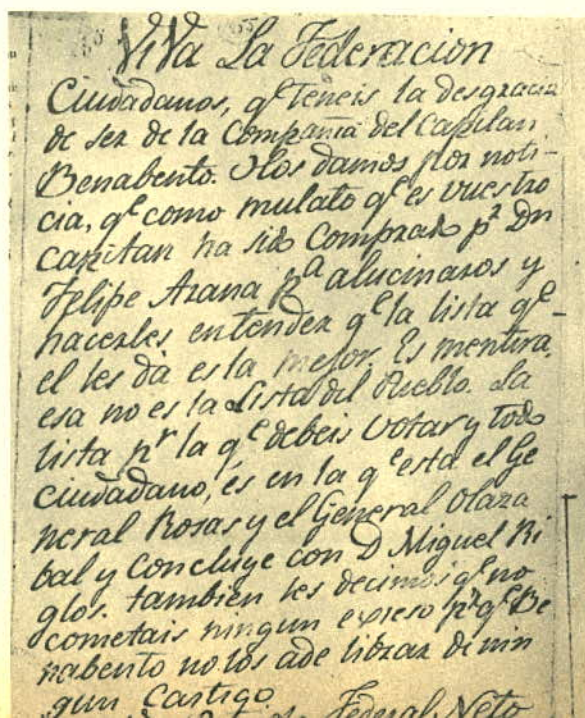 ViVa La Federacion
Ciudadanos, qe teneis la desgracia
de ser de la Compañia del Capitan
Benabento. Os los damos por noti-
cia, qe como mulato qe es vuestro
capitan ha sido Comprado pr Dn
Felipe Arana pa alucinaros y
hacerles entender qe la lista qe
el les dá es la mejor. Es mentira,
esa no es la Lista del Pueblo. La
lista pr la qe debeis votar y todo
Ciudadano, és en la qe está el Ge
neral Rosas y el General Olaza
bal y Concluye con D Miguel Ri
glos. tambien les decimos qe no
cometais ningun exeso pr qe Be
nabento no los ade librar de nin
gun Castigo
Federal Neto